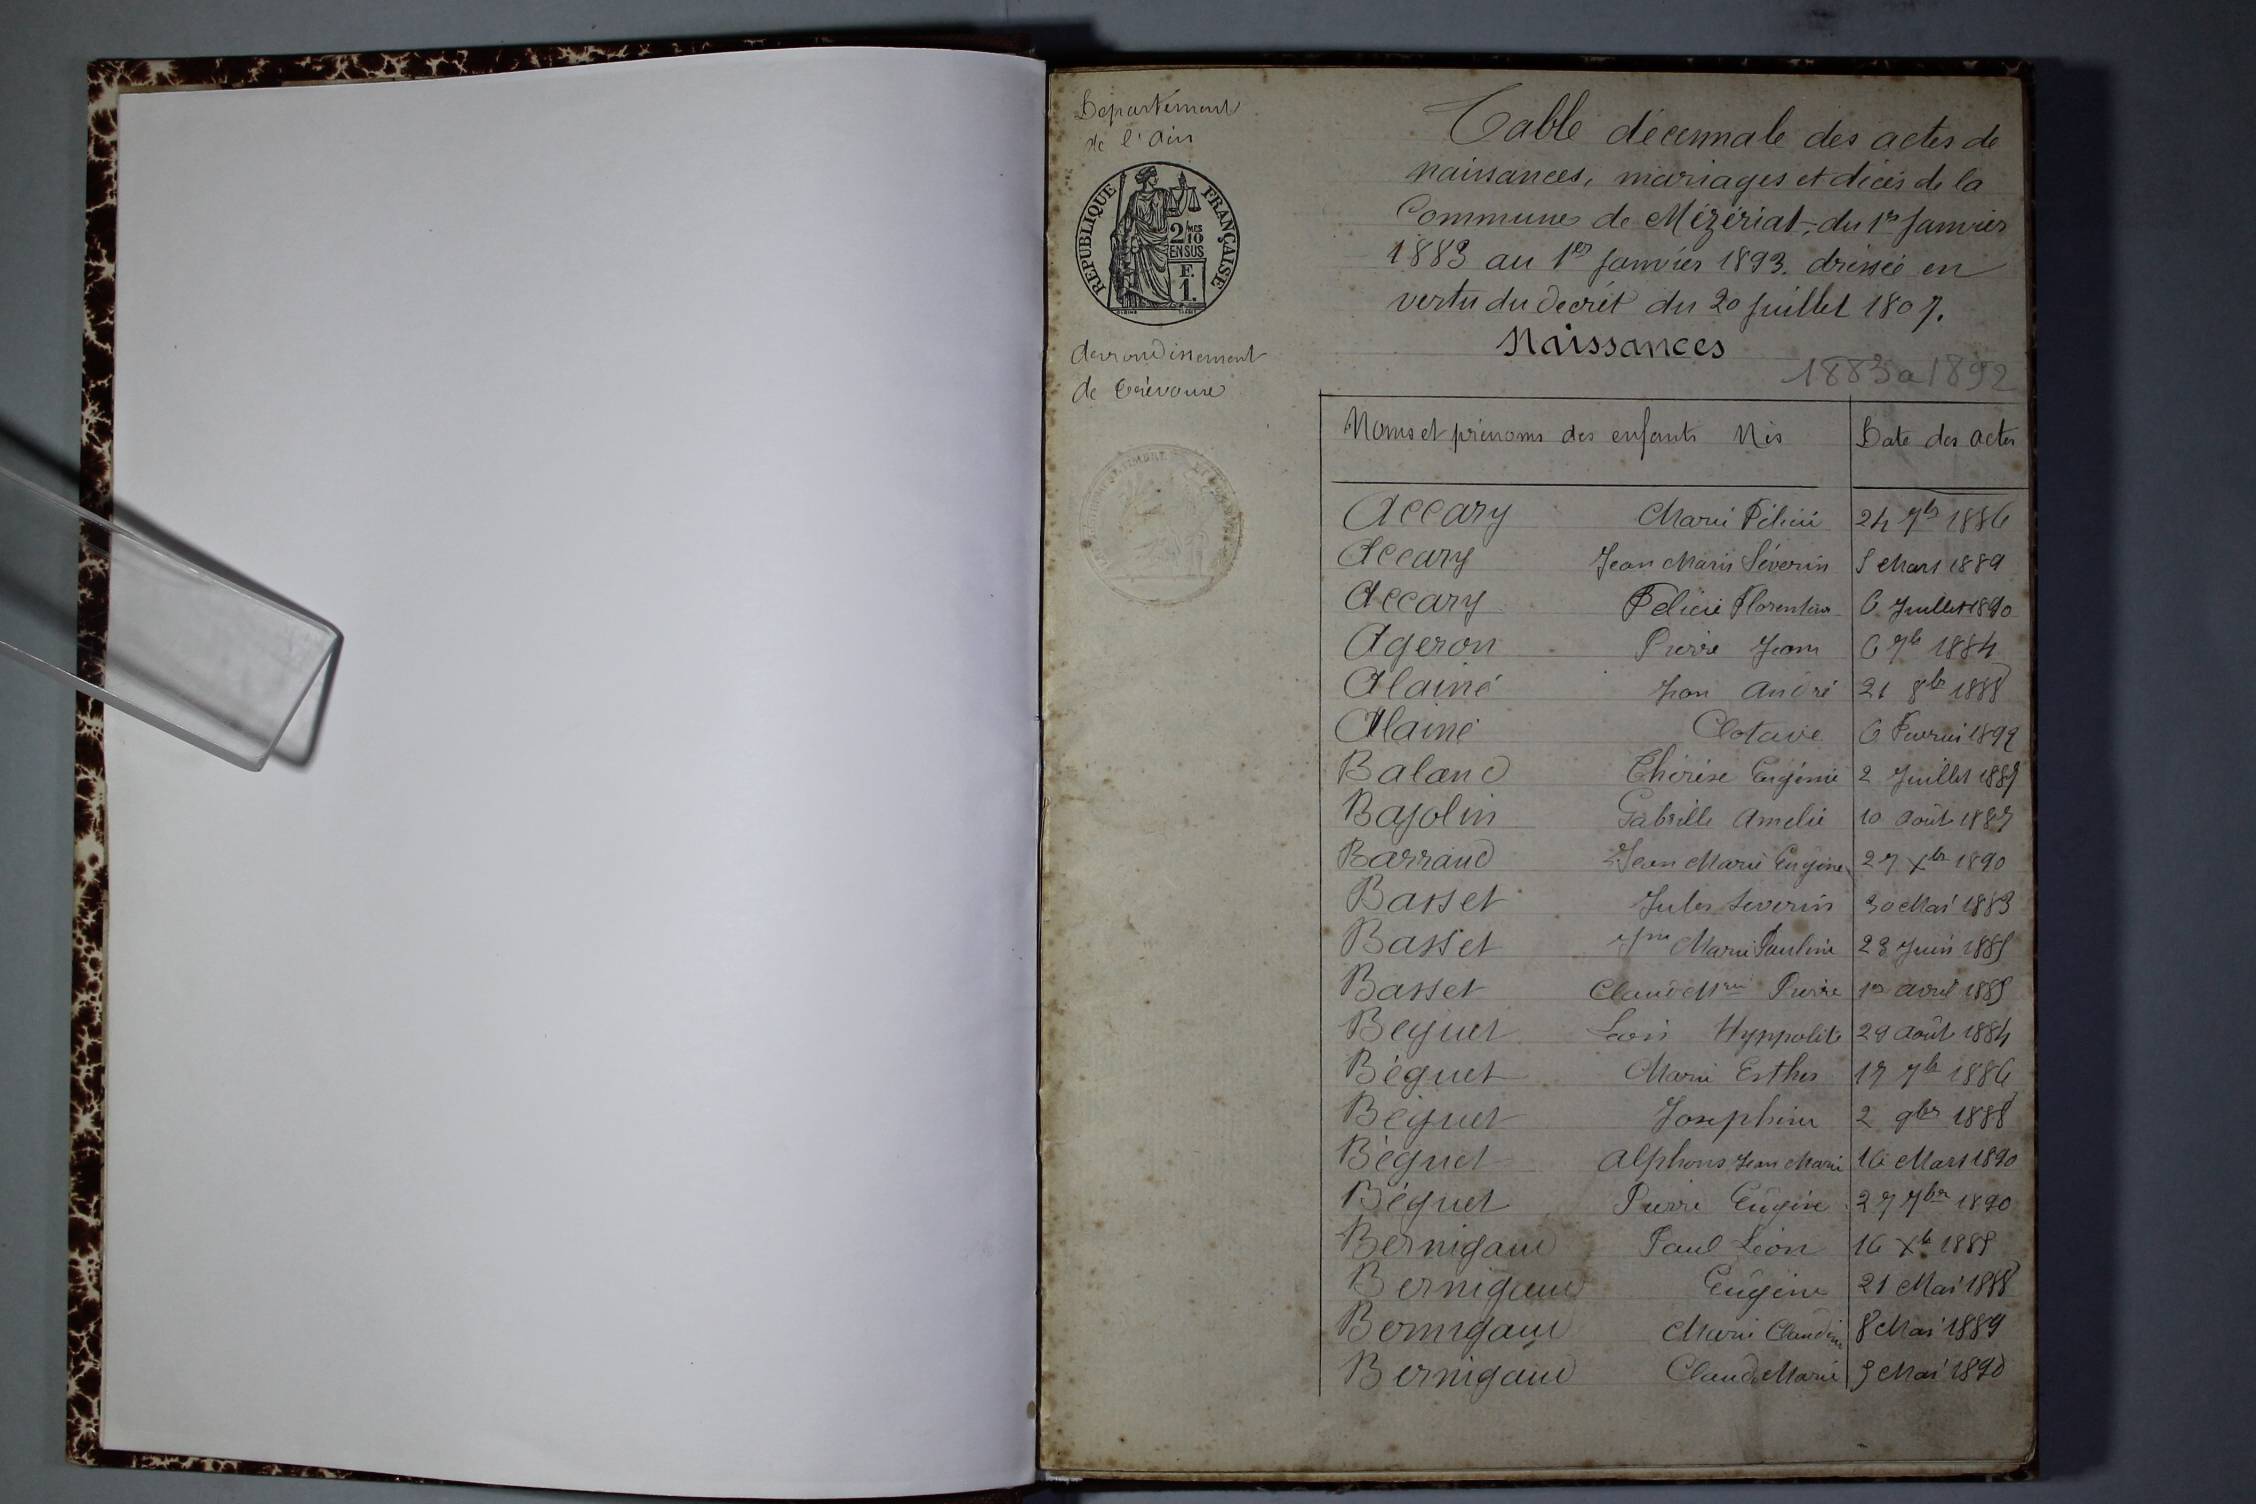 Département
de l'Ain
RÉPUBLIQUE FRANÇAISE
2/10 MES
EN SUS
F.
1.
Arrondissement
de Trévoux
TIMBRE
Table décennale des actes de
naissances, mariages et décès de la
Commune de Mézériat, du 1er Janvier
1883 au 1er Janvier 1893. dressée en
vertu du decrét du 20 Juillet 1807.
Naissances
1883 a 1892
Noms et prénoms des enfants Nés Date des actes
Accary Marie Félicie 24 7bre 1886
Accary Jean Marie Séverin 5 Mars 1889
Accary Félicie Florentine 6 Juillet 1890
Ageron Pierre Jean 6 7bre 1884
Alainé Jean André 21 8bre 1888
Alainé Octavie 6 Fevrier 1892
Baland Thérèse Eugénie 2 Juillet
Bajolin Gabrielle Amelie 10 Août 1887
Barraud Jean Marie Eugène 27 Xbre 1890
Basset Jules Severin 30 Mai 1883
Basset Marie Pauline 23 Juin 1885
Basset Claude Mrie Pierre 1er avril 1885
Beguet Léon Hyppolite 29 Août 1884
Béguet Marie Esther 17 7bre 1886
Béguet Josephine 2 9bre 1888
Béguet Alphonse Jean Marie 16 Mars 1890
Béguet Pierre Eugène 27 7bre 1890
Bernigaud Paul Léon 16 Xbre 1885
Bernigaud Eugène 21 Mai 1888
Bernigaud Marie Claudine 8 Mai 1889
Bernigaud Claude Marie Mai 1890